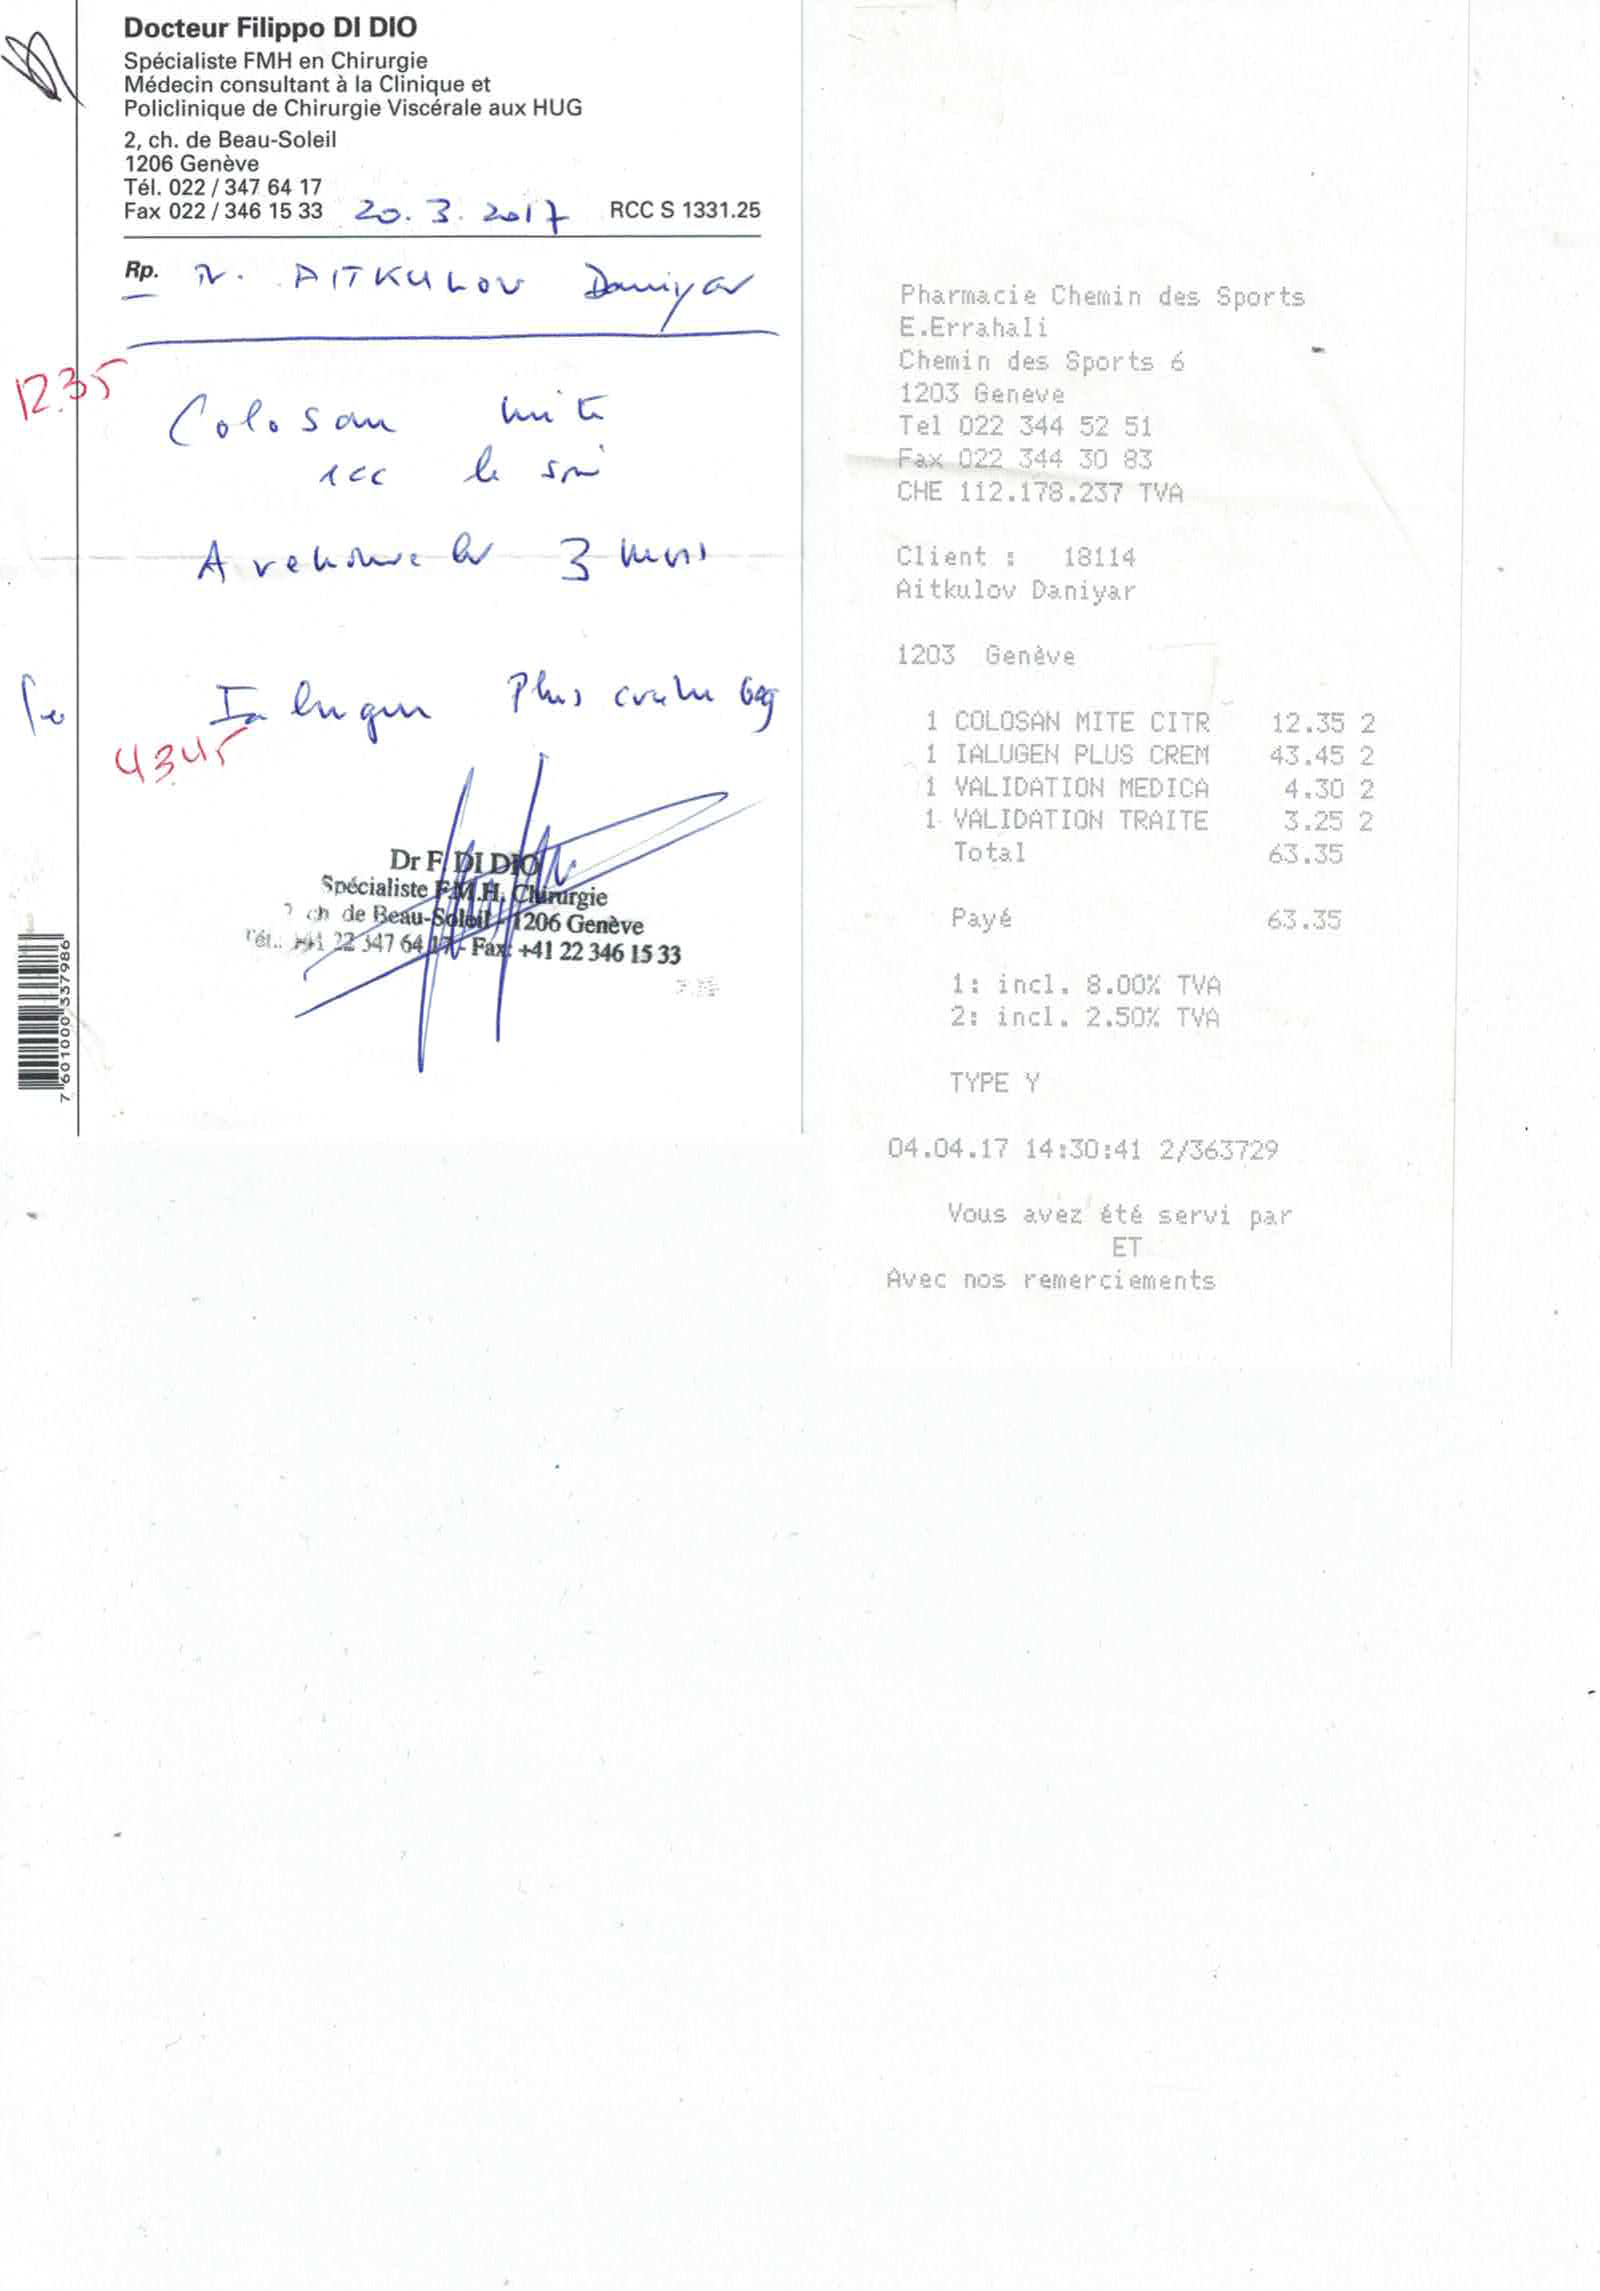 Docteur Filippo DI DIO
Spécialiste FMH en Chirurgie
Médecin consultant à la Clinique et
Policlinique de Chirurgie Viscérale aux HUG
2, ch. de Beau-Soleil
1206 Genève
Tél. 022 / 347 64 17
Fax 022 / 346 15 33 20.3.2017 RCC S 1331.25
Rp. AITKULOV Daniyar
12.35
Colosan mite
1cc le soir
A renouveler 3 mois
Ialugen Plus crème 60g
43.45
Dr F. DI DIO
Spécialiste F.M.H. Chirurgie
ch de Beau-Soleil - 1206 Genève
Tél.: +41 22 347 64 17 - Fax: +41 22 346 15 33
7 601000 337986
Pharmacie Chemin des Sports
E.Errahali
Chemin des Sports 6
1203 Geneve
Tel 022 344 52 51
Fax 022 344 30 83
CHE 112.178.237 TVA
Client : 18114
Aitkulov Daniyar
1203 Genève
1 COLOSAN MITE CITR 12.35 2
1 IALUGEN PLUS CREM 43.45 2
1 VALIDATION MEDICA 4.30 2
1 VALIDATION TRAITE 3.25 2
Total 63.35
Payé 63.35
1: incl. 8.00% TVA
2: incl. 2.50% TVA
TYPE Y
04.04.17 14:30:41 2/363729
Vous avez été servi par
ET
Avec nos remerciements